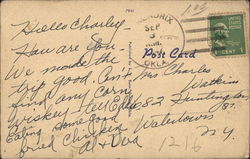 Hello Charley
How are you.
We made the
trip good. Can't
find any corn
whiskey - tell Ella
Eating some good
fried chicken
Al & Dva
7941
SEP
3
OKLA.
Post Card
Mr Charles
Watkins
82 Huntington
St.
Watertown
N.Y.